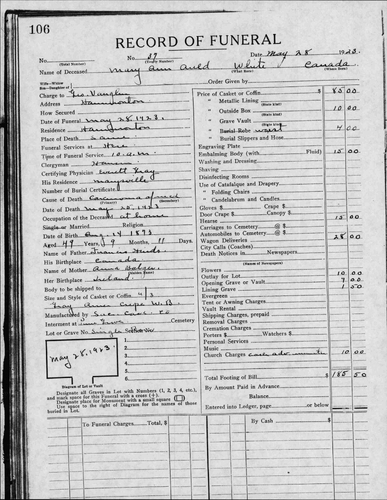 106
RECORD OF FUNERAL
No. No. 47 Date May 28 1923.
(Total Number) (Yearly Number)
Name of Deceased Mary Ann Auld White Canada
(What Race) (Where Born)
Charge to Geo. Vaughn
Address
How Secured
Date of Funeral May 28, 1923.
Residence
Place of Death Same
Funeral Services at
Time of Funeral Service 10 a.m.
Clergyman
Certifying Physician Everett Gray
His Residence
Number of Burial Certificate
Cause of Death
Date of Death May 25, 1923
Occupation of the Deceased at home
Single or Married Religion
Date of Birth Aug. 14 1873
Aged 49 Years, 9 Months 11 Days
Name of Father Francis
His Birthplace Canada
Name of Mother Anna
Her Birthplace Ireland
Body to be shipped to
Size and Style of Casket or Coffin
Manufactured by
Interment at Cemetery
Lot or Grave No. Section No.
May 28, 1923.
Diagram of Lot or Vault
Designate all Graves in Lot with Numbers (1, 2, 3, 4, etc.),
and mark space for this Funeral with a cross (+).
Designate place for Monument with a small square
Use space to right of Diagram for the names of those
buried in Lot.
To Funeral Charges Total, $
Order Given by
Price of Casket or Coffin $ 85 00
" Metallic Lining
" Outside Box 10 00
" Grave Vault
" Burial Robe 4 00
" Burial Slippers and Hose
Engraving Plate
Embalming Body (with Fluid) 15 00
Washing and Dressing
Shaving
Disinfecting Rooms
Use of Catafalque and Drapery
" Folding Chairs
" Candelabrum and Candles
Gloves $ Crape $
Door Crape $ Canopy $
Hearse 15 00
Carriages to Cemetery @ $
Automobiles to Cemetery @ $
Wagon Deliveries 28 00
City Calls (Coaches)
Death Notices in Newspapers
(Names of Newspapers)
Flowers 10 00
Outlay for Lot
Opening Grave or Vault
Lining Grave 1 50
Evergreen
Tent or Awning Charges
Vault Rental
Shipping Charges, prepaid
Removal Charges
Cremation Charges
Porters $ Watchers $
Personal Services
Music
Church Charges 10 00
Total Footing of Bill $ 185 50
By Amount Paid in Advance
Balance
Entered into Ledger, page or below
By Cash $